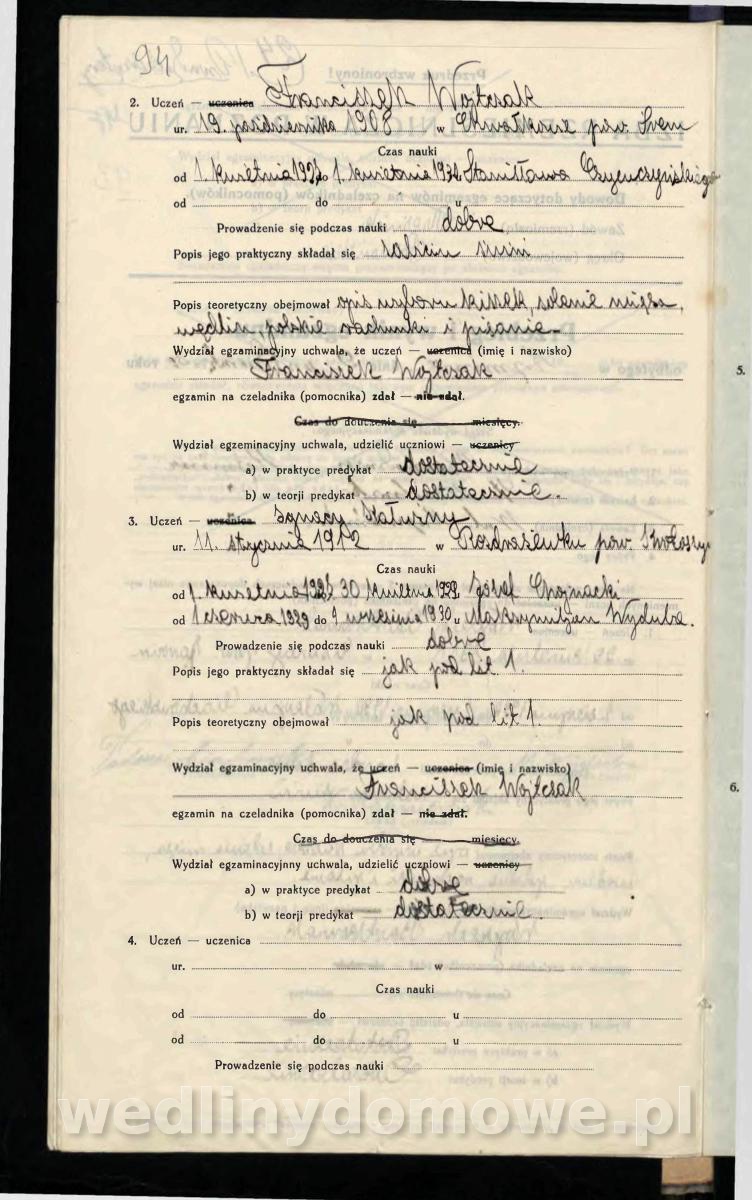 94
2. Uczeń — uczenica Franciszek Wojtczak
ur. 19. października 1908 w Chwałkowie pow. Śrem
Czas nauki
od 1. kwietnia 192 do 1. kwietnia 193 Stanisława
od do u
Prowadzenie się podczas nauki dobre
Popis jego praktyczny składał się zabicia świni
Popis teoretyczny obejmował opis wyboru kiszek, solenie mięsa,
wędlin, polskie rachunki i pisanie
Wydział egzaminacyjny uchwala, że uczeń — uczenica (imię i nazwisko)
Franciszek Wojtczak
egzamin na czeladnika (pomocnika) zdał — nie zdał.
Czas do douczenia się miesięcy.
Wydział egzeminacyjny uchwala, udzielić uczniowi — uczenicy
a) w praktyce predykat dostatecznie
b) w teorji predykat dostatecznie.
3. Uczeń — uczenica Ignacy
ur. 11. stycznia 1912 w Rozdrażewku pow. Krotoszyn
Czas nauki
od 1 kwietnia 192 30 kwietnia 1929 Józef Chojnacki
od 1 czerwca 1929 do 9 września 1930 u Maksymiljan Wyduba.
Prowadzenie się podczas nauki dobre
Popis jego praktyczny składał się jak pod lit 1.
Popis teoretyczny obejmował jak pod lit 1.
Wydział egzaminacyjny uchwala, że uczeń — uczenica (imię i nazwisko)
Franciszek Wojtczak
egzamin na czeladnika (pomocnika) zdał — nie zdał.
Czas do douczenia się miesięcy.
Wydział egzaminacyjnny uchwala, udzielić uczniowi — uczenicy
a) w praktyce predykat dobre
b) w teorji predykat dostatecznie.
4. Uczeń — uczenica
ur. w
Czas nauki
od do u
od do u
Prowadzenie się podczas nauki
5.
6.
wedlinydomowe.pl